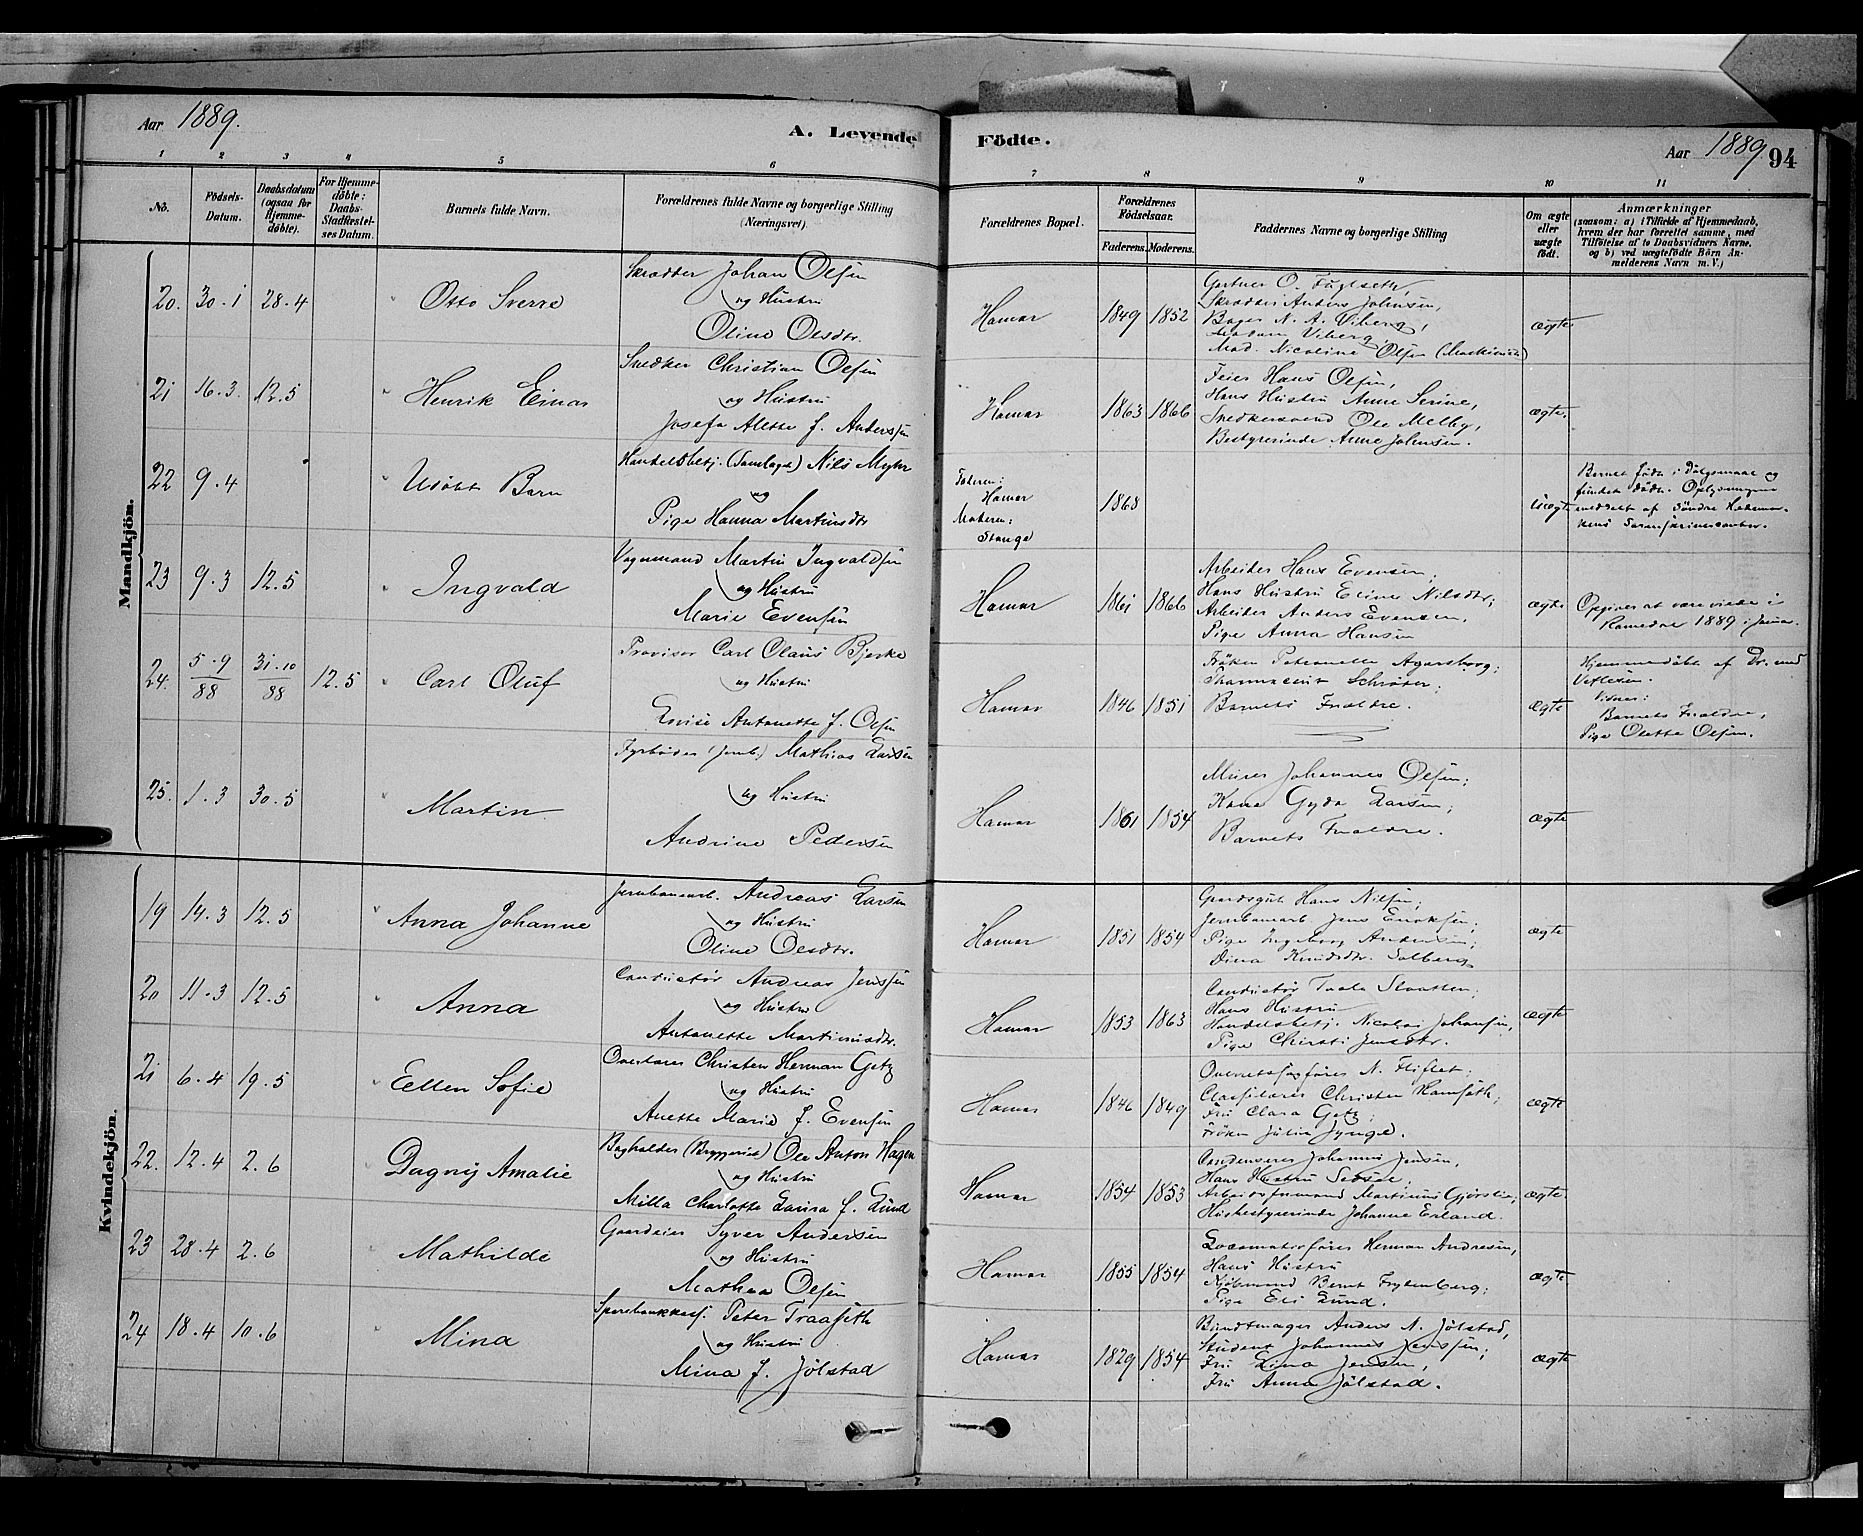 Aar 1889.
A. Levende Födte.
Aar 1889
94
1 2 3 4 5 6 7 8 9 10 11
No.
Födsels-
Datum.
Daabsdatum
(ogsaa for
Hjemme-
døbte).
For Hjemme-
døbte:
Daabs-
Stadfæstel-
ses Datum.
Barnets fulde Navn.
Forældrenes fulde Navne og borgerlige Stilling
(Næringsvei)
Forældrenes Bopæl.
Forældrenes
Födselsaar.
Faderens. Moderens.
Faddernes Navne og borgerlige Stilling
Om ægte
eller
uægte
födt.
Anmærkninger
(saasom: a) i Tilfælde af Hjemmedaab,
hvem der har forrettet samme, med
Tilföielse af to Daabsvidners Navne,
og b) ved uægtefödte Börn An-
melderens Navn m. V.)
Mandkjön.
20. 30.1 28.4
Otto Sverre
Skrædder Johan Olsen
og Hustru
Oline Olsdtr.
Hamar
1849 1852
Gartner O. Fuglseth,
Skrædder Anders Johnsen,
Bager N. A. Viberg,
Madam Viberg,
Mad. Nicoline Olsen
ægte
21 16.3. 12.5
Henrik Einar
Snedker Christian Olsen
og Hustru
Josefa Alette f. Andersen
Hamar
1863 1866
Feier Hans Olsen,
Hans Hustru Anne Serine,
Snedkersvend Ole Melby,
Bestyrerinde Anne Johnsen.
ægte.
22 9.4
Udöbt Barn
Handelsbetj. (Samlaget) Nils Myhr
og
Pige Hanna Martinsdtr
Faderen:
Hamar
Moderen:
Stange
1868
uægte
Barnet födt i Dølgsmaal og
fundet dödt. Oplysningene
meddelt af Söndre Hedemar-
kens Sorenskrivercontor.
23 9.3 12.5
Ingvald
Vognmand Martin Ingvaldsen
og Hustru
Marie Evensen
Hamar
1861 1866
Arbeider Hans Evensen,
Hans Hustru Eline Nilsdtr;
Arbeider Anders Evensen,
Pige Anna Hansen
ægte
Opgives at være viede i
Romedal 1889 i Januar.
24. 5.9/88 31.10/88 12.5
Carl Oluf
Provisor Carl Claus Bjerke
og Hustru
Lovise Antonette f. Olsen
Hamar
1846 1851
Fröken Petronelle Agersborg;
Pharmaceut Schröder;
Barnets Forældre.
ægte
Hjemmedöbt af Dr. med
Vetlesen.
Vidner:
Barnets Forældre,
Pige Olette Olsen.
25. 1.3 30.5
Martin
Fyrböder (Jernb.) Mathias Larsen
og Hustru
Andrine Pedersen
Hamar
1861 1854
Murer Johannes Olsen;
Kone Gyda Larsen;
Barnets Forældre.
ægte
Kvindekjön.
19 14.3 12.5
Anna Johanne
Jernbanearb. Andreas Larsen
og Hustru
Oline Olsdtr.
Hamar
1851 1854
Gaardsgut Hans Nilsen;
Jernbanearb. Jens Eriksen;
Pige Ingeborg Andersen;
Dina Knudsdtr. Solberg
ægte
20 11.3 12.5
Anna
Conductör Andreas Jenssen
og Hustru
Antonette Martinusdtr.
Hamar
1853 1863
Conductör Slaatten;
Hans Hustru
Handelsbetj. Nicolai Johansen,
Pige Chirsti Jensdtr.
ægte
21 6.4 19.5
Ellen Sofie
Overlærer Christen Herman Getz
og Hustru
Anette Marie f. Evensen
Hamar
1846 1849
Overretssagförer N. Fliflet;
Christen Ramseth;
Fru Clara Getz;
Fröken Julie Jynge.
ægte
22. 12.4 2.6
Dagny Amalie
Bogholder (Bryggeriet) Ole Anton Hagen
og Hustru
Milla Charlotte Laura f. Lund
Hamar
1854 1853
Johannes Jensen,
Hans Hustru
Arbeidsformand Martinus Gjörslie,
Husbestyrerinde Johanne Erland.
ægte
23 28.4 2.6
Mathilde
Gaardeier Syver Andersen
og Hustru
Mathea Olsen
Hamar
1855 1854
Locomotivförer Herman Andresen,
Hans Hustru
Kjöbmand Bernt Frydenberg;
Pige Eli Lund.
ægte
24 18.4 10.6
Mina
Sparebankkass. Peter Traaseth
og Hustru
Mina f. Jölstad
Hamar
1829 1854
Bundtmager Anders N. Jölstad,
Student Johannes Jenssen;
Fru Lina Jensen,
Fru Anna Jölstad.
ægte